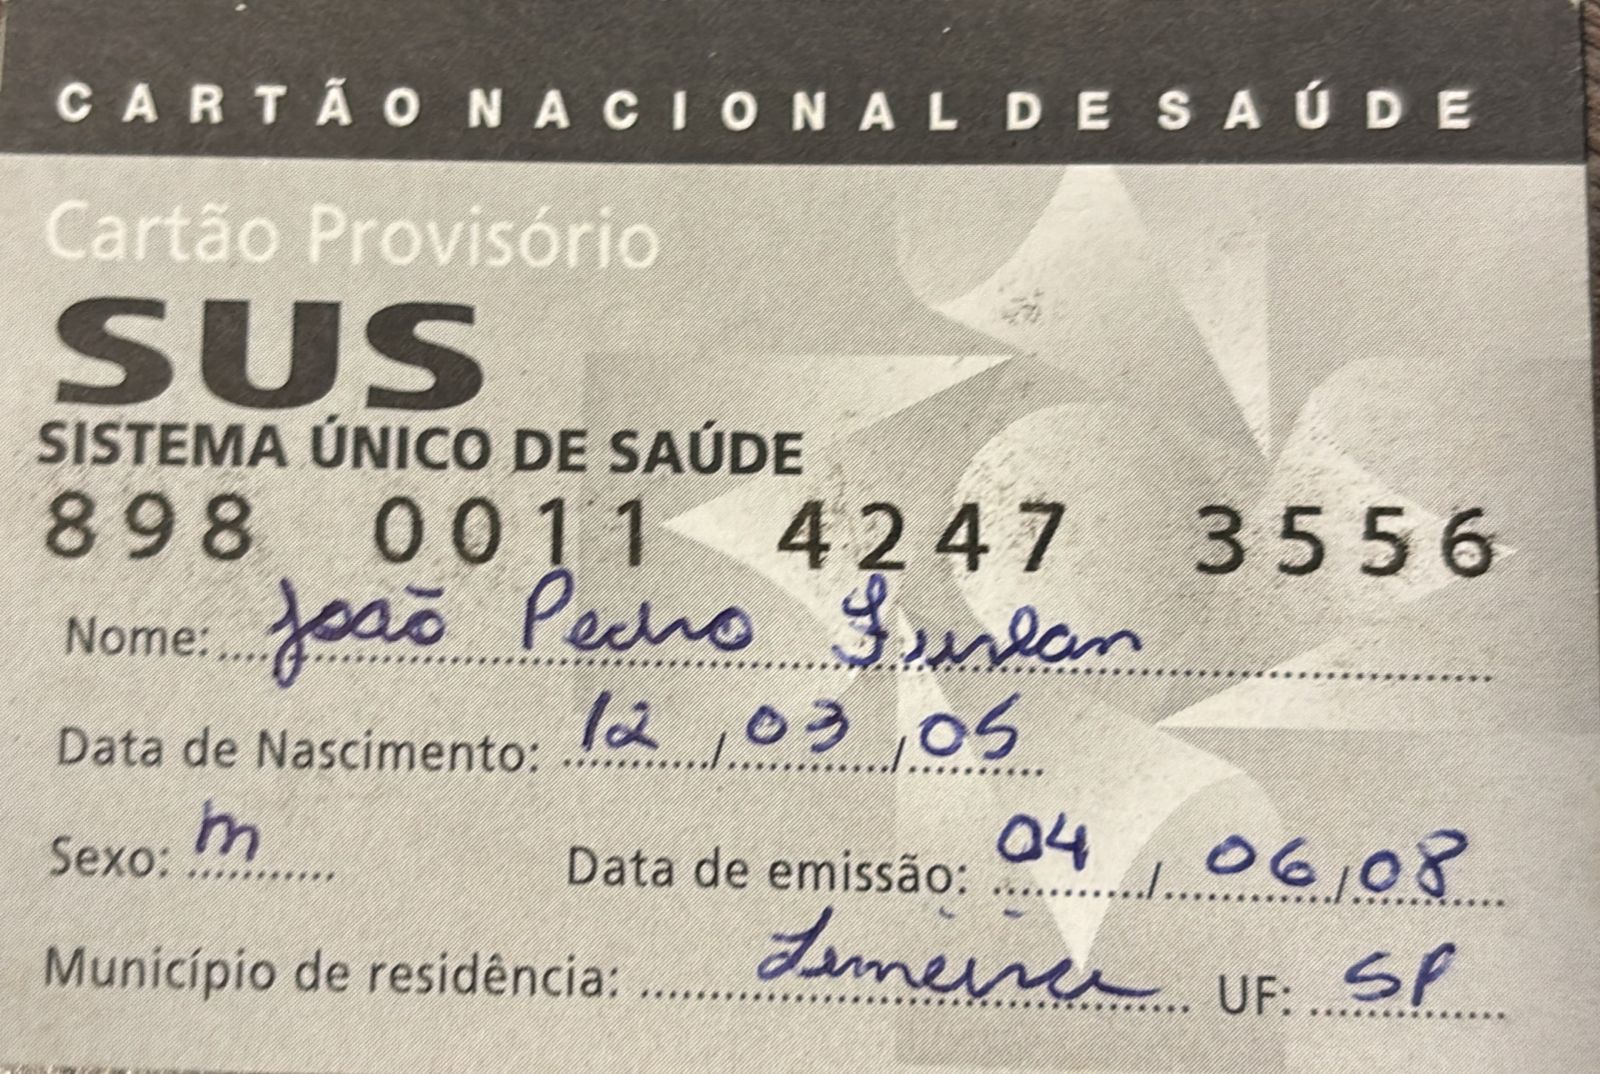 CARTÃO NACIONAL DE SAÚDE
Cartão Provisório
SUS
SISTEMA ÚNICO DE SAÚDE
898 0011 4247 3556
Nome: João Pedro Furlan
Data de Nascimento: 12/03/05
Sexo: m Data de emissão: 04/06/08
Município de residência: Limeira UF: SP